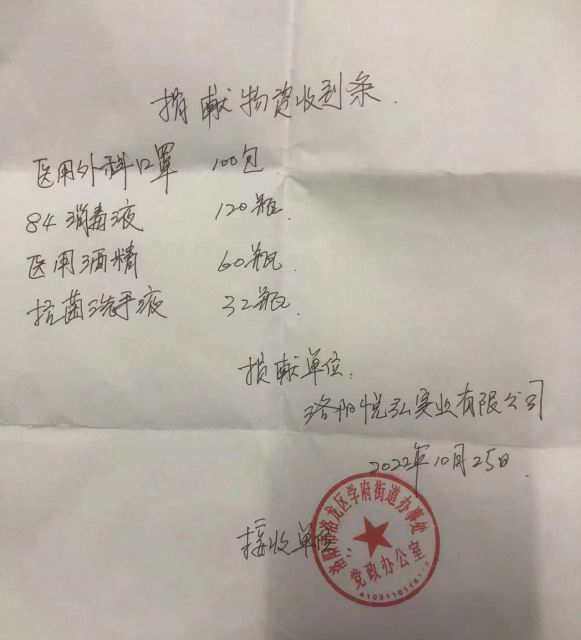 捐献物资收到条.
医用外科口罩 100包
84消毒液 120瓶.
医用酒精 60瓶.
抗菌洗手液 32瓶.
捐献单位:
洛阳悦弘实业有限公司
2022年10月25日.
接收单位:
洛阳市洛龙区学府街道办事处
党政办公室